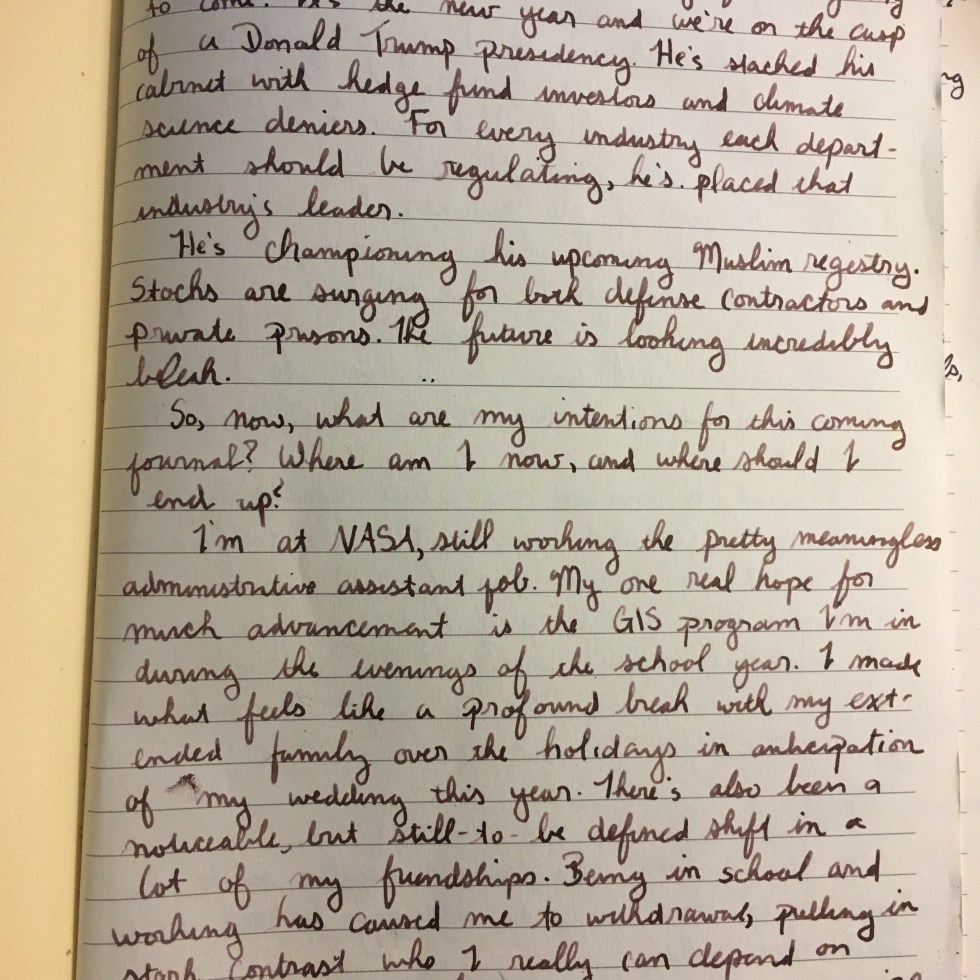 to come. It's the new year and we're on the cusp
of a Donald Trump presidency. He's stacked his
cabinet with hedge fund investors and climate
science deniers. For every industry each depart-
ment should be regulating, he's. placed that
industry's leader.
He's championing his upcoming Muslim registry.
Stocks are surging for both defense contractors and
private prisons. The future is looking incredibly
bleak.
So, now, what are my intentions for this coming
journal? Where am I now, and where should I
end up?
I'm at NASA, still working the pretty meaningless
administrative assistant job. My one real hope for
much advancement is the GIS program I'm in
during the evenings of the school year. I made
what feels like a profound break with my ext-
ended family over the holidays in anticipation
of my wedding this year. There's also been a
noticeable, but still-to-be defined shift in a
lot of my friendships. Being in school and
working has caused me to withdrawal, pulling in
stark contrast who I really can depend on